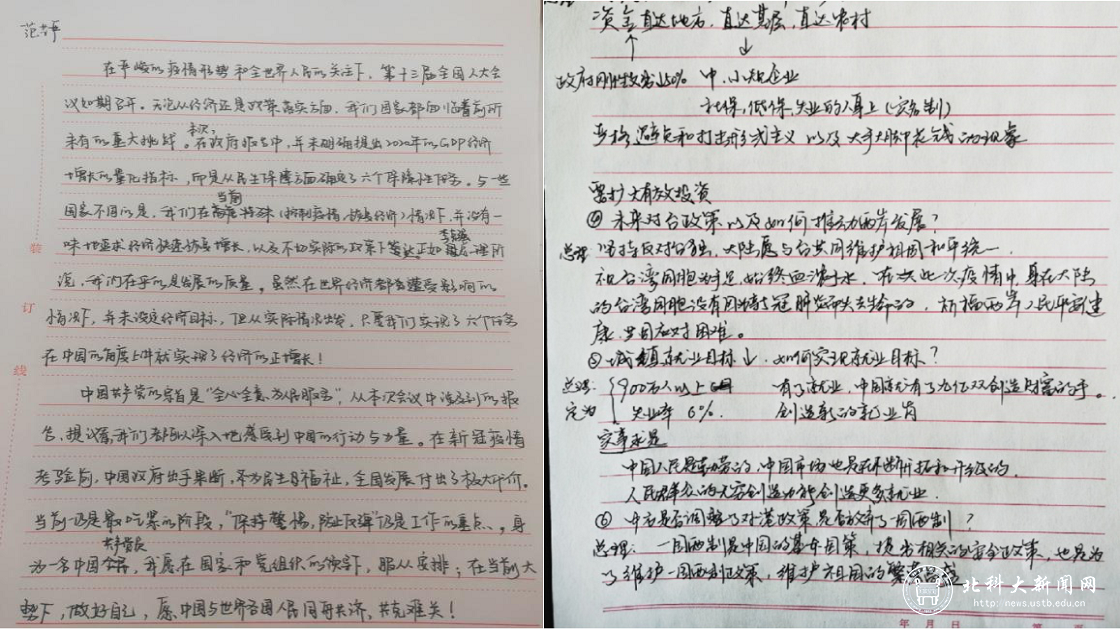 在严峻的疫情形势和全世界人民的关注下，第十三届全国人大会
议如期召开。无论从经济还是政策落实方面，我们国家都面临着前所
本次，
未有的重大挑战。在政府报告中，并未明确提出2020年的GDP经济
增长的量化指标，而是从民生保障方面确定了六个保障性任务。与一些
当前
国家不同的是，我们在特殊（抑制疫情、恢复经济）情况下，并没有一
味地追求经济快速恢复增长，以及不切实际的政策下达。正如总理所
说，我们在乎的是发展的质量。虽然在世界经济都遭受影响的
情况下，并未设定经济目标，但从实际情况出发，只要我们实现了六个任务
在中国的角度上讲就实现了经济的正增长！
中国共产党的宗旨是“全心全意为人民服务”，从本次会议中涉及到的报
告、提议等，我们都可以深入地感受到中国的行动与力量。在新冠疫情
考验前，中国政府出手果断，冬为民生谋福祉，全国发展付出了极大代价。
当前仍是最吃紧的阶段，“保持警惕，防止反弹”仍是工作的重点。身
共产党员
为一名中国，我愿在国家和党组织的领导下，服从安排；在当前大
势下，做好自己，愿中国与世界各国人民同舟共济，共克难关！
装
订
线
资金直达地方，直达基层，直达农村
↑ ↓
政府刚性支出50% 中、小短企业
社保，低保，失业的人身上（实名制）
严格避免和打击形式主义 以及大手大脚花钱的现象
需扩大有效投资
④ 未来对台政策以及如何推动两岸发展？
总理：坚持反对台独，大陆愿与台共同维护祖国和平统一
和台湾同胞手足，始终血浓于水，在次此次疫情中，身在大陆
的台湾同胞没有因新冠肺炎而失去生命的，祈福两岸人民平安健
康，共同应对困难。
⑤ 城镇就业目标↓，如何实现就业目标？
总理：900万人以上 有了就业，中国就有了九亿双创造财富的手。
定为 失业率 6%. 创造新的就业岗
实事求是
中国人民是勤劳的，中国市场也是不断开拓和升级的.
人民群众的无穷创造力能创造更多就业.
⑥ 中方是否调整了对港政策，是否放弃了一国两制？
总理：一国两制是中国的基本国策，提出相关的安全政策，也是为
了维护一国两制政策，维护祖国的
北科大新闻网
http://news.ustb.edu.cn
年 月 日